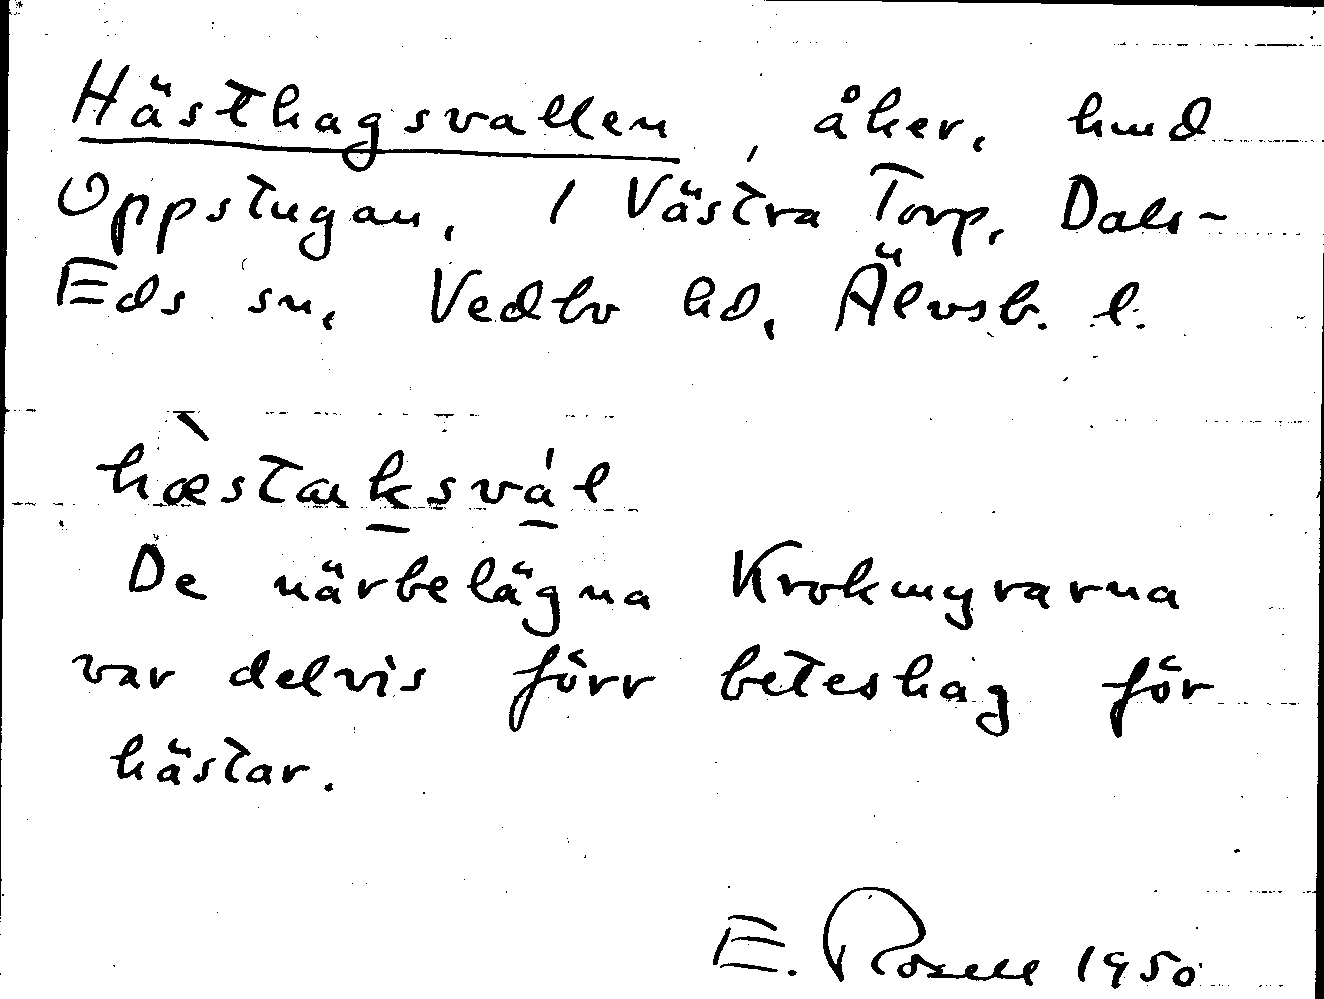 Hästhagsvallen, åker, hmd
Oppstugan, 1 Västra Torp, Dals-
Eds sn, Vedbo hd, Älvsb. l.
De närbelägna Krokmyrarna
var delvis förr beteshag för
hästar.
E. Rosell 1950